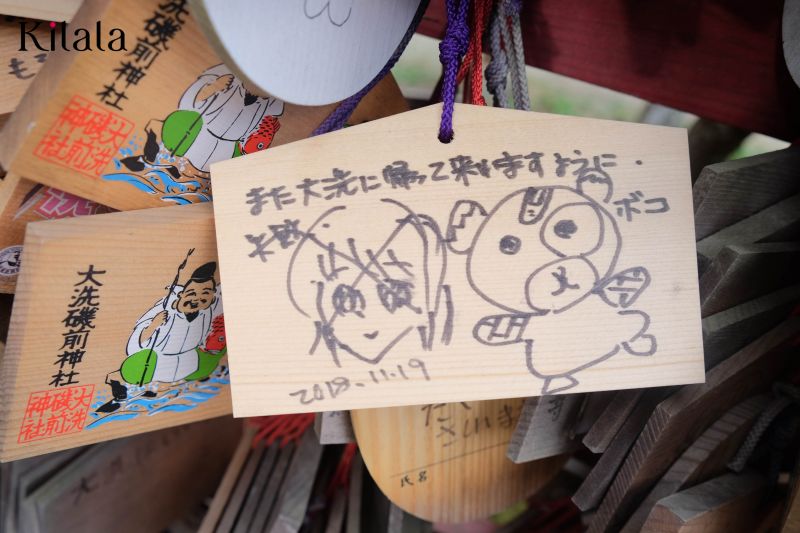 Kilala
大洗磯前神社
大洗
磯前
神社
大洗磯前神社
大洗
磯前
神社
また大洗に帰って来れますように.
失敗.
ボコ
2018.11.19
氏名